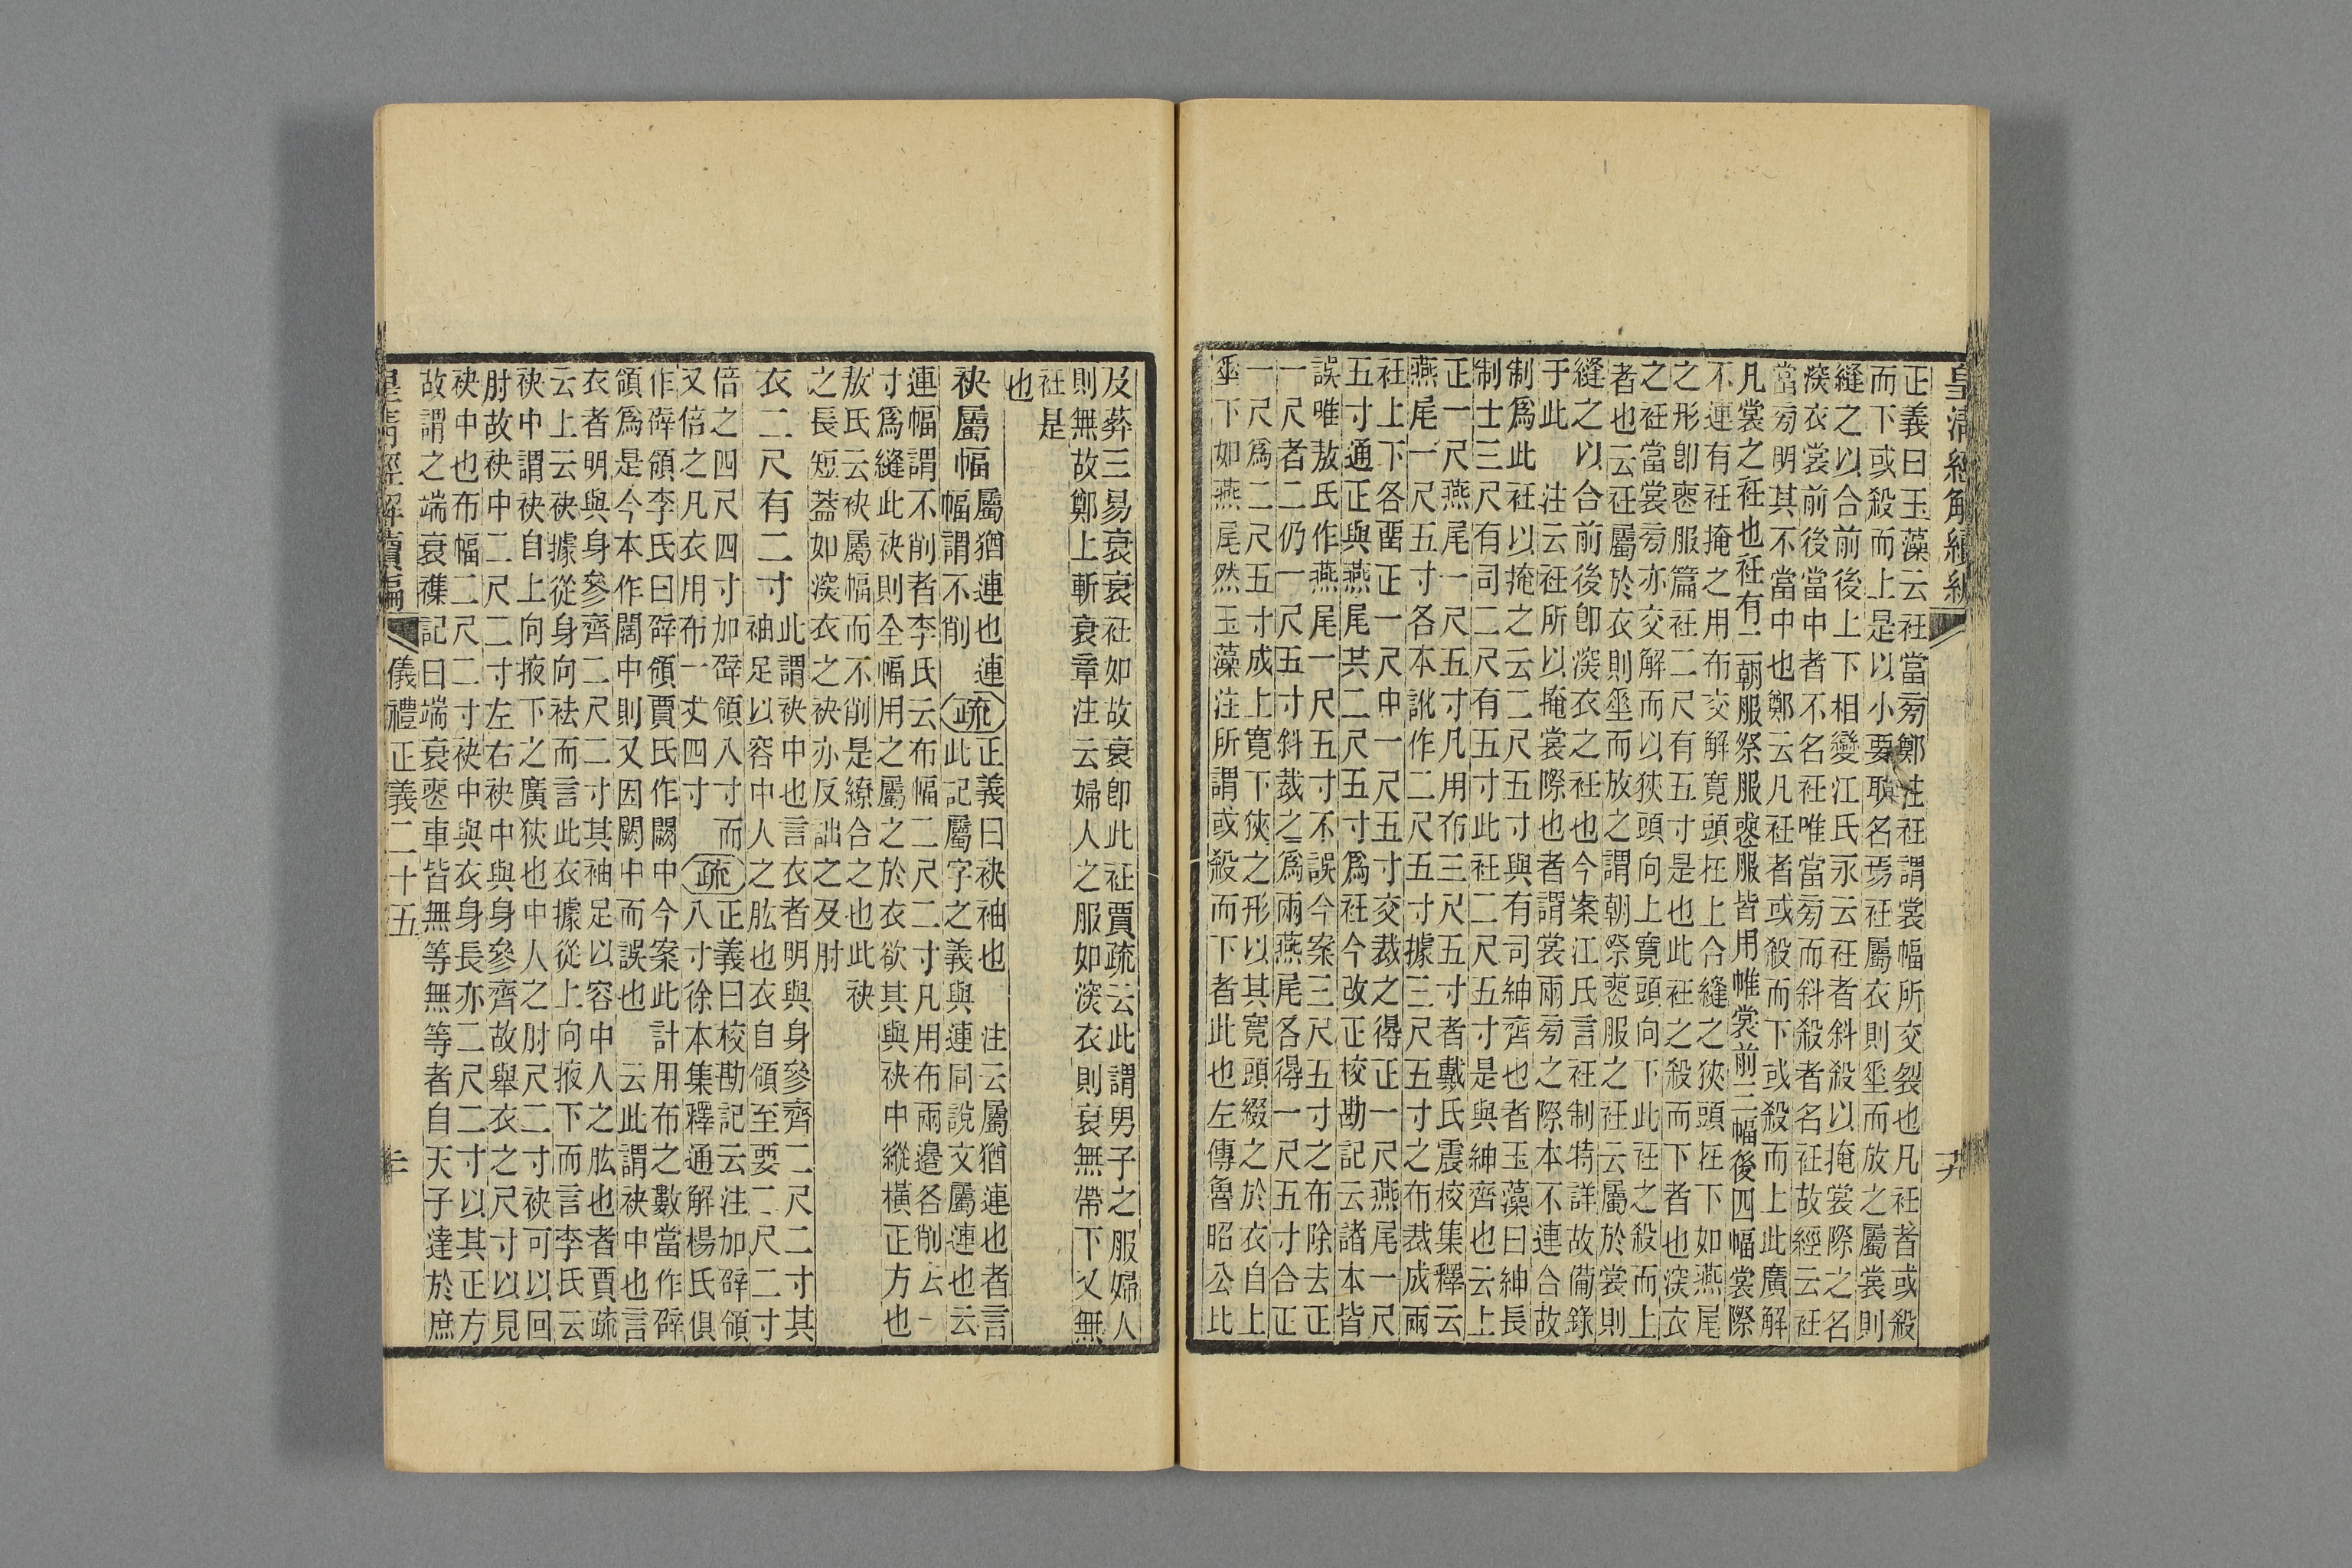 皇清經解續編　十九
正義曰玉藻云衽當旁鄭注衽謂裳幅所交裂也凡衽者或殺
而下或殺而上是以小要取名焉衽屬衣則垂而放之屬裳則
縫之以合前後上下相變江氏永云衽者斜殺以掩裳際之名
深衣裳前後當中者不名衽唯當旁而斜殺者名衽故經云衽
當旁明其不當中也鄭云凡衽者或殺而下或殺而上此廣解
凡裳之衽也衽有二朝服祭服喪服皆用帷裳前三幅後四幅裳際
不連有衽掩之用布交解寬頭在上合縫之狹頭在下如燕尾
之形卽喪服篇衽二尺有五寸是也此衽之殺而下者也深衣
之衽當裳旁亦交解而以狹頭向上寬頭向下此衽之殺而上
者也云衽屬於衣則垂而放之謂朝祭喪服之衽云屬於裳則
縫之以合前後卽深衣之衽也今案江氏言衽制特詳故備錄
于此　注云衽所以掩裳際也者謂裳兩旁之際本不連合故
制爲此衽以掩之云二尺五寸與有司紳齊也者玉藻曰紳長
制士三尺有司二尺有五寸此衽二尺五寸是與紳齊也云上
正一尺燕尾一尺五寸凡用布三尺五寸者戴氏震校集釋云
燕尾一尺五寸各本訛作二尺五寸據三尺五寸之布裁成兩
衽上下各留正一尺中一尺五寸交裁之得正一尺燕尾一尺
五寸通正與燕尾其二尺五寸爲衽今改正校勘記云諸本皆
誤唯敖氏作燕尾一尺五寸不誤今案三尺五寸之布除去正
一尺者二仍一尺五寸斜裁之爲兩燕尾各得一尺五寸合正
一尺爲二尺五寸成上寬下狹之形以其寬頭綴之於衣自上
垂下如燕尾然玉藻注所謂或殺而下者此也左傳魯昭公比
及葬三易衰衰衽如故衰卽此衽賈疏云此謂男子之服婦人
則無故鄭上斬衰章注云婦人之服如深衣則衰無帶下又無
衽是
也
袂屬幅
屬猶連也連
幅謂不削
疏
正義曰袂袖也　注云屬猶連也者言
此記屬字之義與連同說文屬連也云
連幅謂不削者李氏云布幅二尺二寸凡用布兩邊各削去一
寸爲縫此袂則全幅用之屬之於衣欲其與袂中縱橫正方也
敖氏云袂屬幅而不削是繚合之也此袂
之長短蓋如深衣之袂亦反詘之及肘
衣二尺有二寸
此謂袂中也言衣者明與身參齊二尺二寸其
袖足以容中人之肱也衣自領至要二尺二寸
倍之四尺四寸加辟領八寸而
又倍之凡衣用布一丈四寸
疏
正義曰校勘記云注加辟領
八寸徐本集釋通解楊氏俱
作辟領李氏曰辟領賈氏作闕中今案此計用布之數當作辟
領爲是今本作闊中則又因闕中而誤也　云此謂袂中也言
衣者明與身參齊二尺二寸其袖足以容中人之肱也者賈疏
云上云袂據從身向袪而言此衣據從上向掖下而言李氏云
袂中謂袂自上向掖下之廣狹也中人之肘尺二寸袂可以回
肘故袂中二尺二寸左右袂中與身參齊故舉衣之尺寸以見
袂中也布幅二尺二寸袂中與衣身長亦二尺二寸以其正方
故謂之端衰襍記曰端衰喪車皆無等無等者自天子達於庶
皇清經解續編　儀禮正義二十五　二十